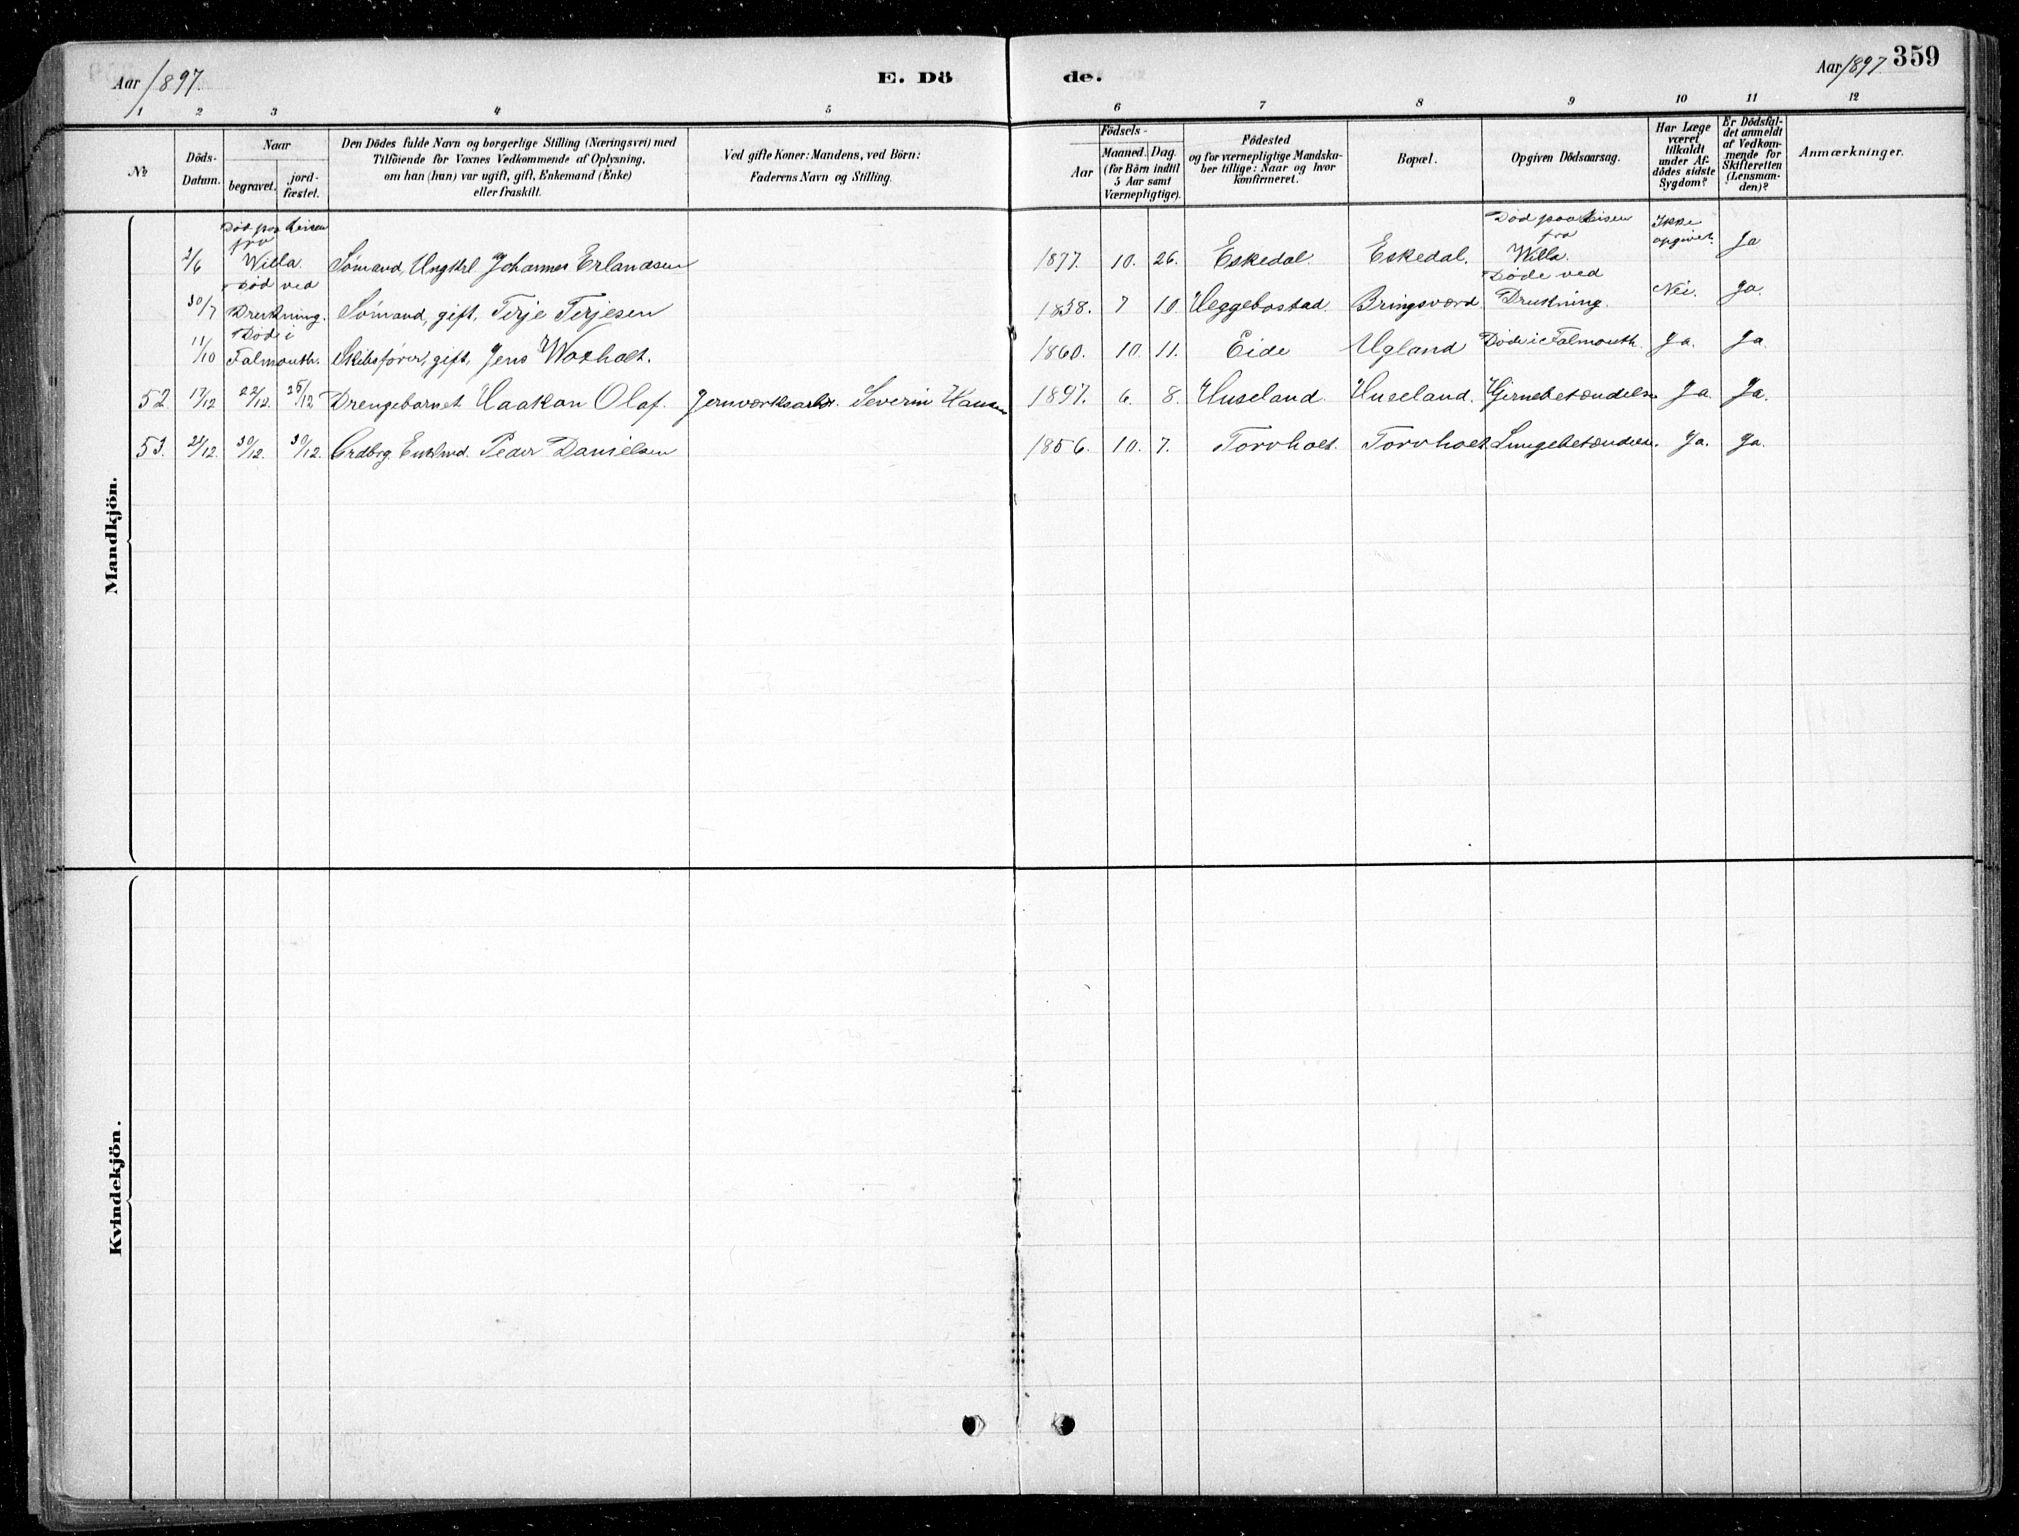 Aar 1897.
E. Dö
de.
Aar 1897. 359
1 2 3 4 5 6 7 8 9 10 11 12
No
Döds-
Datum.
Naar
begravet.
jord-
fæstet.
Den Dödes fulde Navn og borgerlige Stilling (Næringsvei) med
Tilföiende for Voxnes Vedkommende af Oplysning,
om han (hun) var ugift, gift, Enkemand (Enke)
eller fraskilt.
Ved gifte Koner: Mandens, ved Börn:
Faderens Navn og Stilling.
Födsels-
Aar
Maaned. Dag.
(for Börn indtil
5 Aar samt
Værnepligtige).
Födested
og for værnepligtige Mandska-
ber tillige: Naar og hvor
konfirmeret.
Bopæl.
Opgiven Dödsaarsag.
Har Læge
været
tilkaldt
under Af-
dödes sidste
Sygdom?
Er Dödsfal-
det anmeldt
af Vedkom-
mende for
Skifteretten
(Lensman-
den)?
Anmærkninger.
Mandkjön.
2/6 Död paa Reisen fra Willa. Sømand, Ungkrl Johannes Erlandsen 1877. 10. 26. Eskedal. Eskedal. Död paa Reisen fra Willa. Ikke opgivet. Ja
30/7 Död ved Drukning. Sømand, gift, Terje Terjesen 1838. 7 10. Heggebostad Bringsværd Døde ved Drukning. Nei. Ja.
11/10 Døde i Falmouth. Skibsfører, gift, Jens Woxholt. 1860. 10. 11. Eide Ugland Døde i Falmouth. Ja. Ja.
52 17/12 22/12. 25/12 Drengebarnet Haakon Olaf. Jernværksarbdr. Severin Hansen 1897. 6. 8. Huseland. Huseland. Hjernebetændelse Ja. Ja.
53. 23/12. 30/12. 30/12. Grdbrg. Enkmd. Peder Danielsen 1856. 10. 7. Torvholt. Torvholt Lungebetændelse. Ja. Ja.
Kvindekjön.